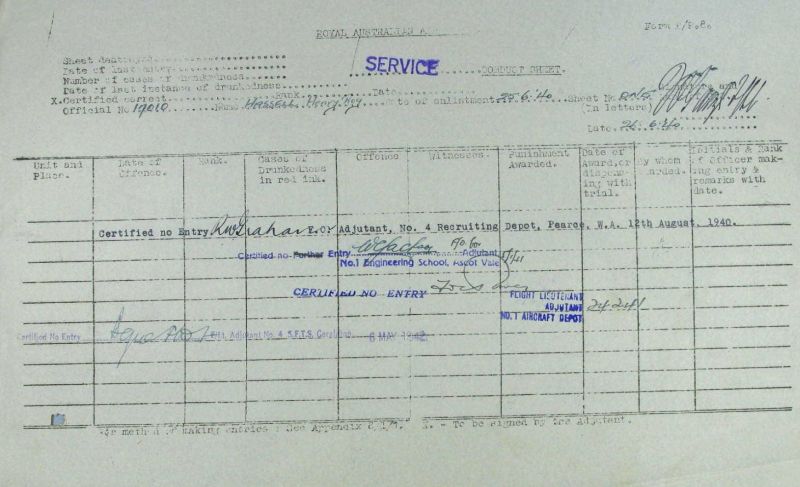 ROYAL AUSTRALIAN
Form
Sheet destroyed
Date of last entry
Number of cases of drunkenness
Date of last instance of drunkenness
SERVICE CONDUCT SHEET.
X.Certified correct Rank Date
Official No 19010 Name HASSELL Date of enlistment 25.6.40 Sheet No. ONE
(In letters)
Date 26.6.40
Unit and Place. Date of Offence. Rank. Cases of Drunkenness in red ink. Offence Witnesses. Punishment Awarded. Date of Award, or dispensing with trial. By whom Awarded. Initials & Rank of Officer making entry & remarks with date.
Certified no Entry F.O. Adjutant, No. 4 Recruiting Depot, Pearce, W.A. 12th August, 1940.
Certified no Further Entry Adjutant
No.1 Engineering School, Ascot Vale
CERTIFIED NO ENTRY
FLIGHT LIEUTENANT
ADJUTANT 24.2.41
NO.1 AIRCRAFT DEPOT
Certified No Entry Adjutant No. 4 S.F.T.S. Geraldton 6 MAY 1942
For method of making entries : See Appendix X. - To be signed by the Adjutant.